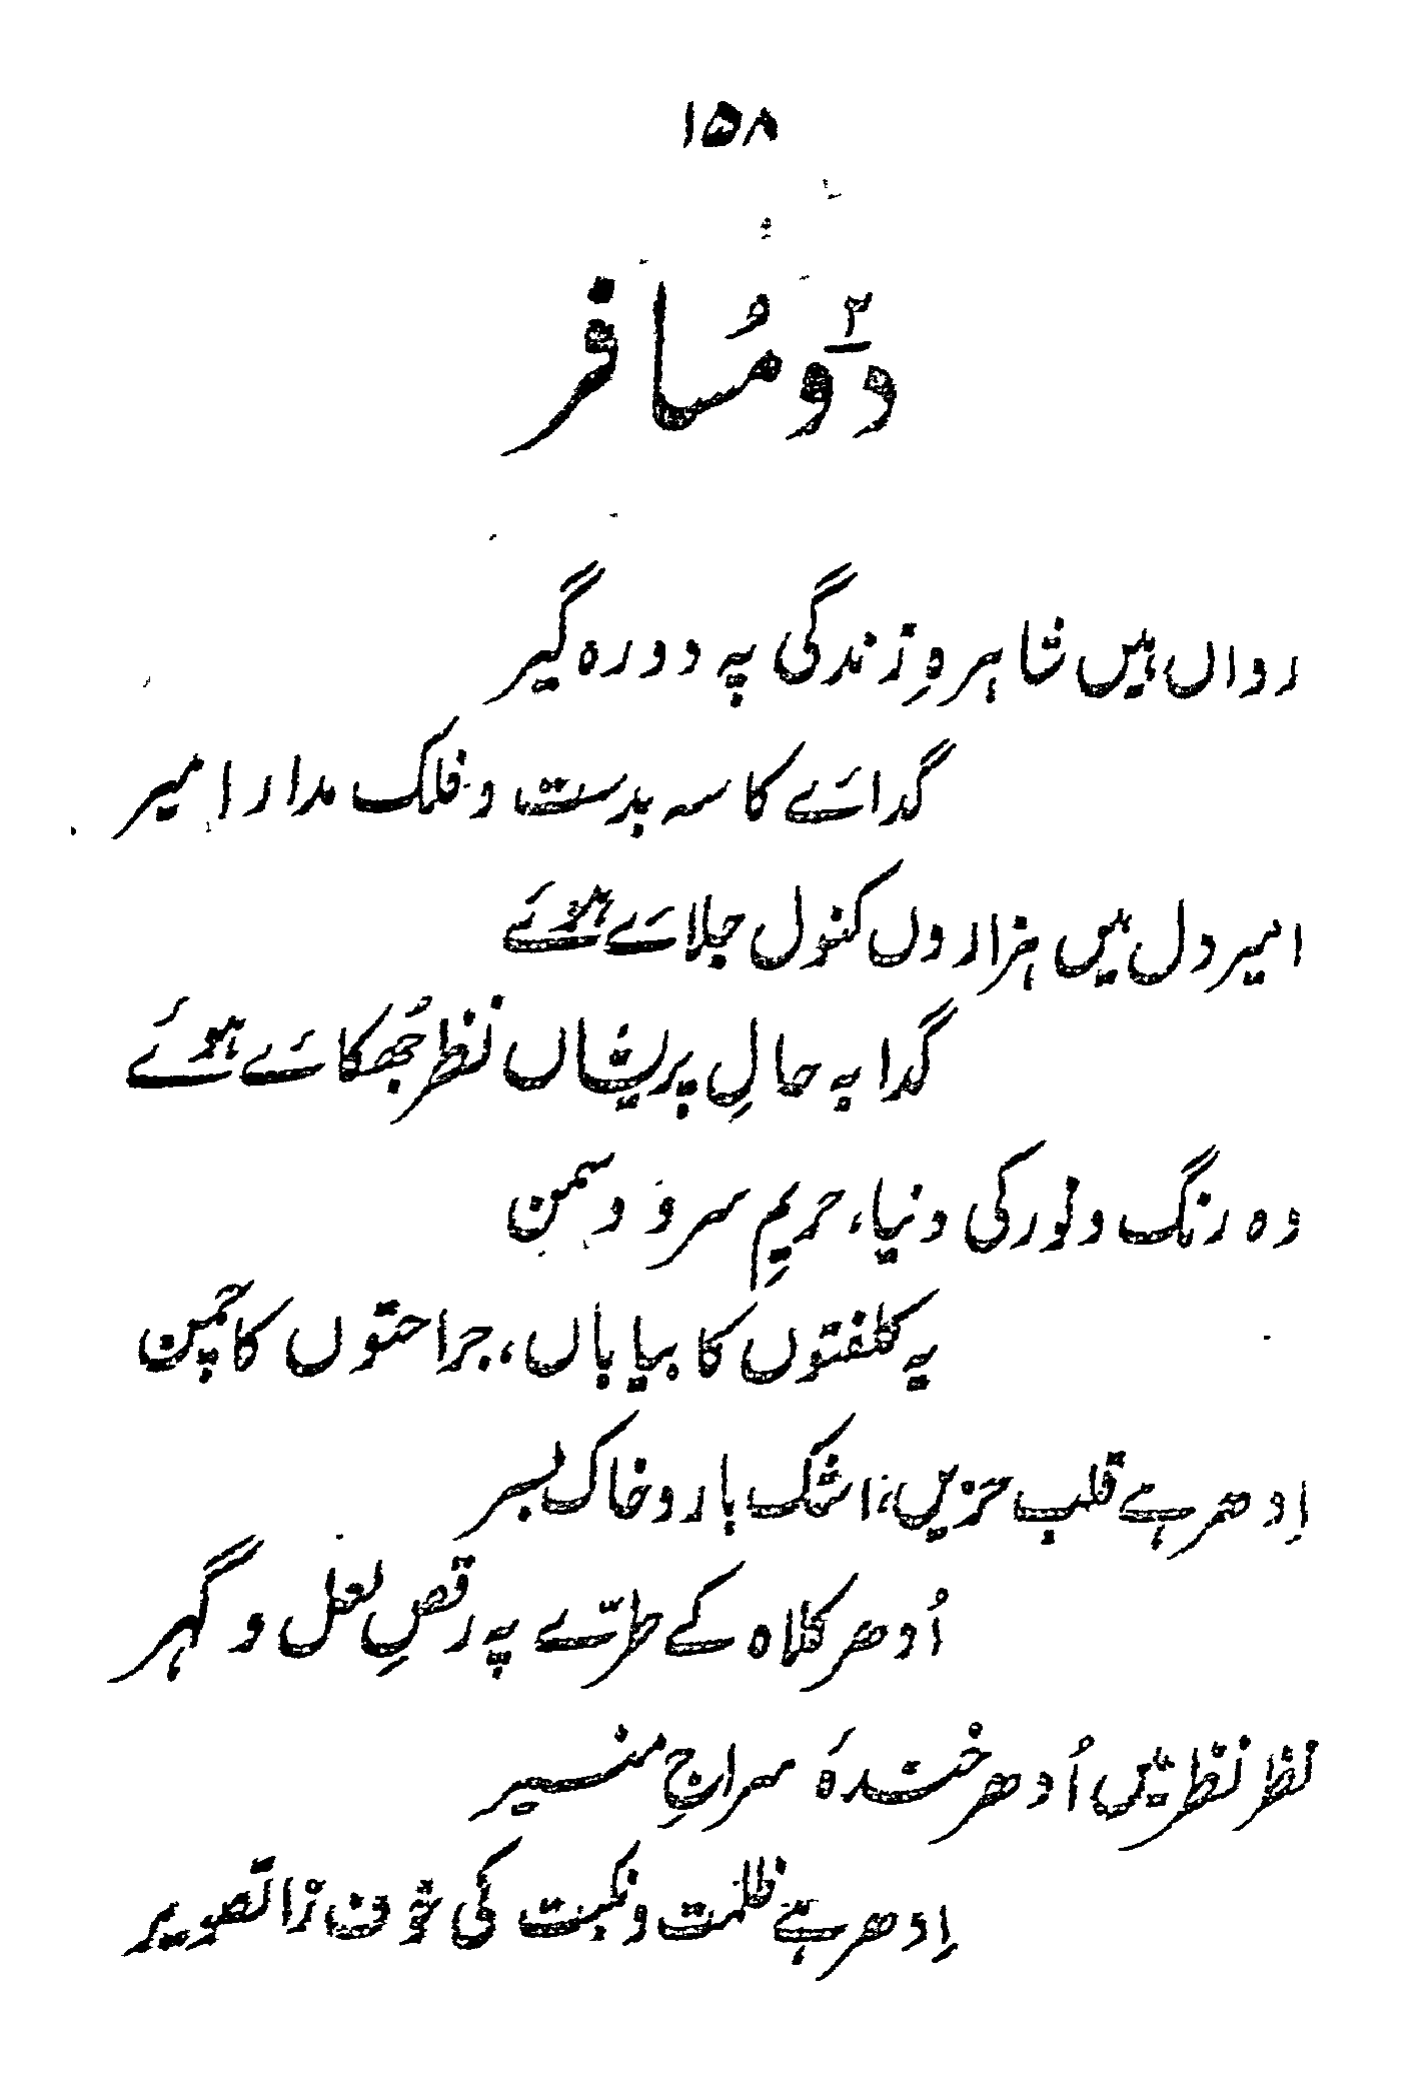 ۱۵۸
دو مُسافر
رواں ہیں شاہرہِ زندگی پہ دو رہ گیر
گدائے کاسہ بدست و فلک مدار امیر
امیر دل میں ہزاروں کنول جلائے ہوئے
گدا بہ حالِ پریشاں نظر جُھکائے ہوئے
وہ رنگ و نور کی دنیا، حریمِ سرو و سمن
یہ کلفتوں کا بیاباں، جراحتوں کا چمن
اِدھر ہے قلب حزیں، اشک بار و خاک بسر
اُدھر کلاہ کے طرّے پہ رقصِ لعل و گہر
نظر نظر میں اُدھر خندۂ سراجِ منیر
اِدھر ہے ظلمت و نکبت کی خوف زا تصویر